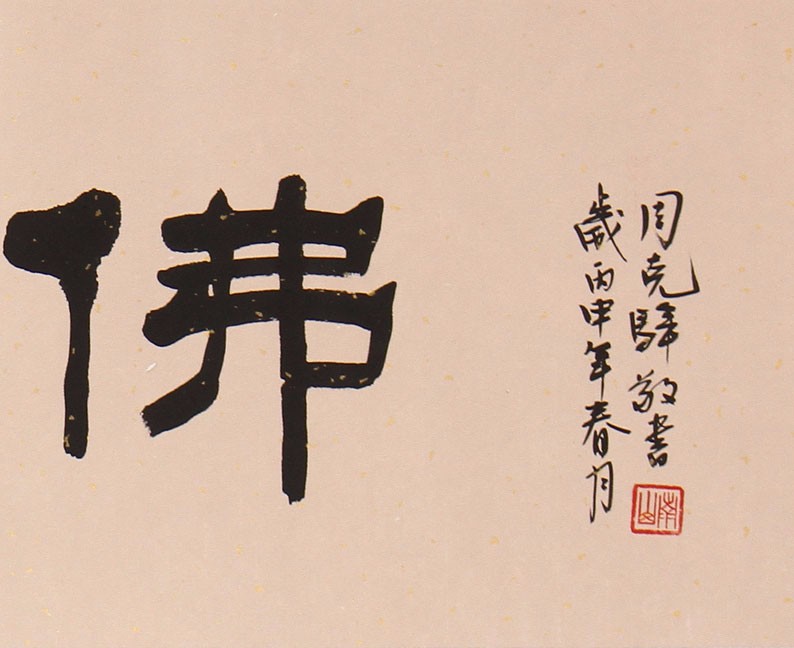 佛
歲丙申年春月
周克驛敬書